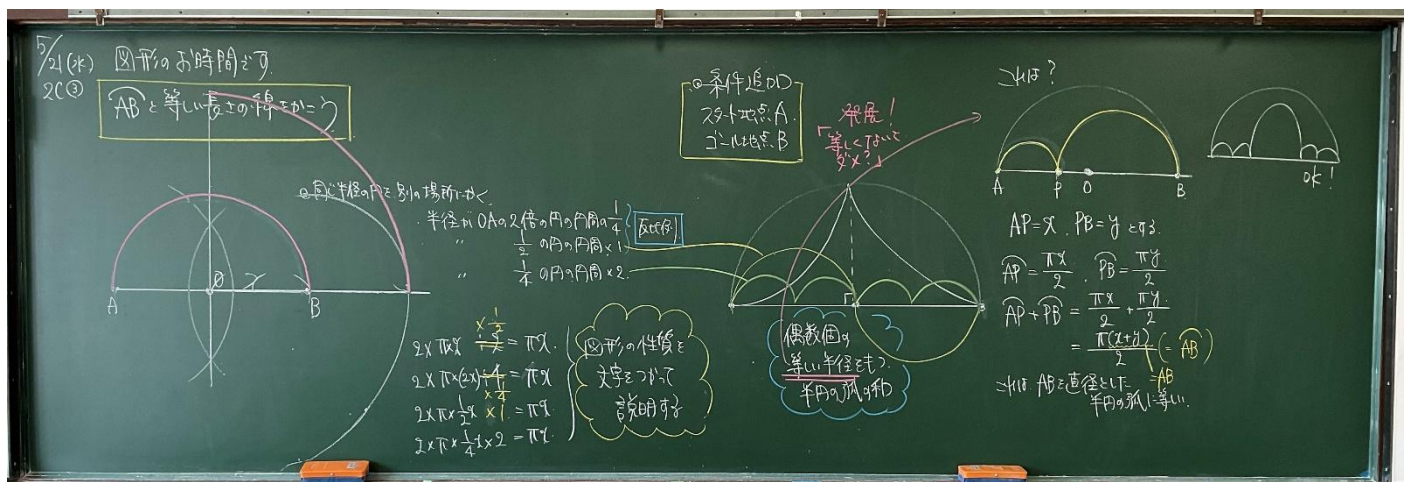 5/21(水) 図形のお時間です
2C③
⌒ABと等しい長さの線をかこう
A
O
x
B
◎同じ半径の円を別の場所にかく
半径がOAの2倍の円の円周の1/4
〃 1/2の円の円周×1
〃 1/4の円の円周×2
反比例!
2×π×x×1/2=πx
2×π×(2x)×1/4=πx
2×π×1/2x×1=πx
2×π×1/4x×2=πx
図形の性質を
文字をつかって
説明する
◎条件追加
スタート地点A
ゴール地点B
発展!
「等しくないと
ダメ?」
偶数個の
等しい半径をもつ
半円の弧の和
これは?
A
P
O
B
OK!
AP=x. PB=yとする
⌒AP=πx/2. ⌒PB=πy/2
⌒AP+⌒PB=πx/2+πy/2
=π(x+y)/2(=⌒AB)
=AB
これはABを直径とした
半円の弧に等しい.